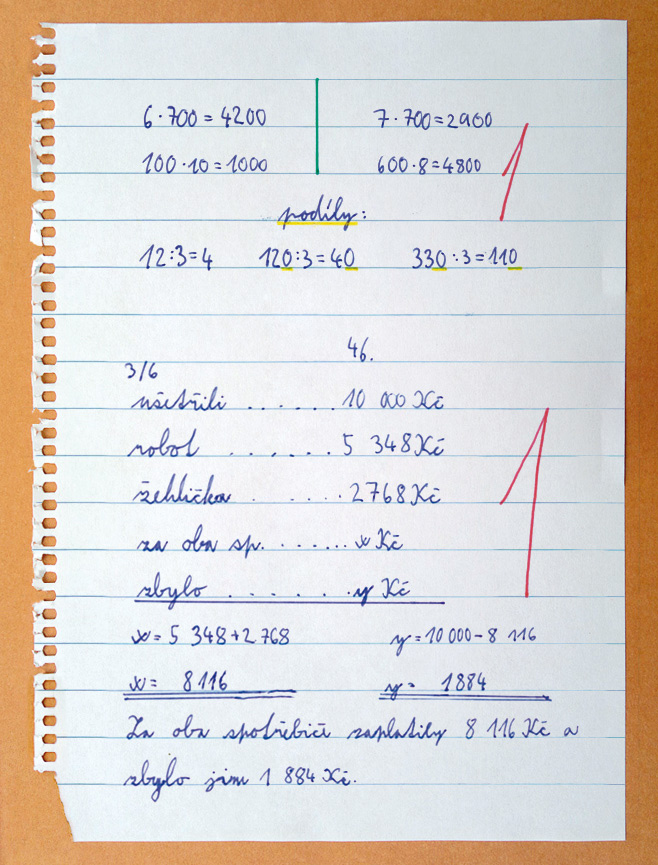 6·700=4200 7·700=2900
100·10=1000 600·8=4800
1
podíly:
12:3=4 120:3=40 330:3=110
46.
3/6
ušetřili ...... 10 000 Kč
robot ...... 5 348 Kč
žehlička ..... 2768 Kč
za oba sp. ...... x Kč
zbylo ...... y Kč
1
x = 5 348+2 768 y = 10 000-8 116
x = 8116 y = 1884
Za oba spotřebiče zaplatily 8 116 Kč a
zbylo jim 1 884 Kč.